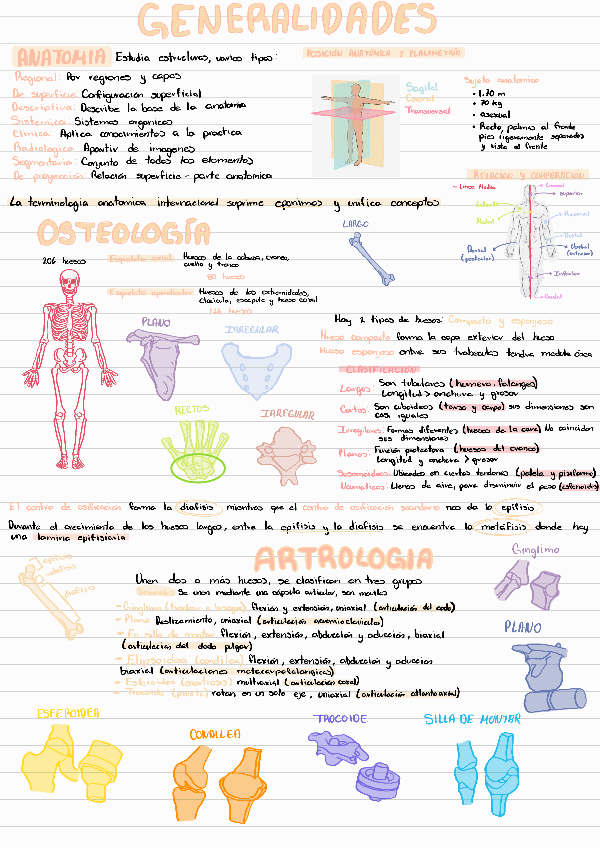 GENERALIDADES
ANATOMIA Estudia estructuras, varios tipos:
Regional: Por regiones y capas
De superficie: Configuración superficial
Descriptiva: Describe la base de la anatomia
Sistemica: Sistemas organicos
Clinica: Aplica conocimientos a la practica
Radiologica: Aportiv de imagenes
Segmentaria: Conjunto de todos los elementos
De proyección: Relación superficie - parte anatomica
POSICIÓN ANATÓMICA Y PLANIMETRÍA
Sagital
Coronal
Transversal
Sujeto anatomico
• 1.70 m
• 70 kg
• asexual
• Recto, palmas al frente
pies ligeramente separados
y vista al frente
La terminologia anatomica internacional suprime eponimos y unifica conceptos
RELACION Y COMPARACIÓN
Linea Media
Craneal
Superior
Medial
Proximal
Distal
Dorsal
(posterior)
Ventral
(anterior)
Inferior
Caudal
OSTEOLOGÍA
206 huesos
Esqueleto axial: Huesos de la cabeza, craneo,
cuello y tronco
80 huesos
Esqueleto apendicular: Huesos de las extremidades,
clavicula, escapula y hueso coxal
126 huesos
LARGO
PLANO
IRREGULAR
RECTOS
IRREGULAR
Hay 2 tipos de huesos: Compacto y esponjoso
Hueso compacto forma la capa exterior del hueso
Hueso esponjoso entre sus trabeculas tendra medula osea
CLASIFICACIÓN
Largos: Son tubulares (humero, falanges)
Longitud > anchura y grosor
Cortos: Son cuboideos (tarso y carpo) sus dimensiones son
casi iguales
Irregulares: Formas diferentes (huesos de la cara) No coinciden
sus dimensiones
Planos: Función protectora (huesos del craneo)
Longitud y anchura > grosor
Sesamoideos: Ubicados en ciertos tendones (patela y pisiforme)
Neumaticos: Llenos de aire, para disminuir el peso (esfenoides)
El centro de osificación forma la diafisis mientras que el centro de osificación secundario nos da la epifisis
Durante el crecimiento de los huesos largos, entre la epifisis y la diafisis se encuentra la metafisis donde hay
una lamina epifisiaria
epifisis
metafisis
diafisis
ARTROLOGIA
Unen dos o más huesos, se clasifican en tres grupos
Se unen mediante una capsula articular, son moviles
Ginglimo (troclear o bisagra) flexión y extensión, uniaxial (articulación del codo)
Plana Deslizamiento, uniaxial (articulación acromioclavicular)
En silla de montar flexión, extensión, abducción y aducción, biaxial
(articulación del dedo pulgar)
Elipsoidea (condilea) flexión, extensión, abducción y aduccion
biaxial (articulaciones metacarpofalangicas)
Esferoidea multiaxial (articulación coxal)
Trocoide (pivote) rotan en un solo eje, uniaxial (articulación atlantoaxial)
Ginglimo
PLANO
ESFEROIDEA
CONDILEA
TROCOIDE
SILLA DE MONTAR